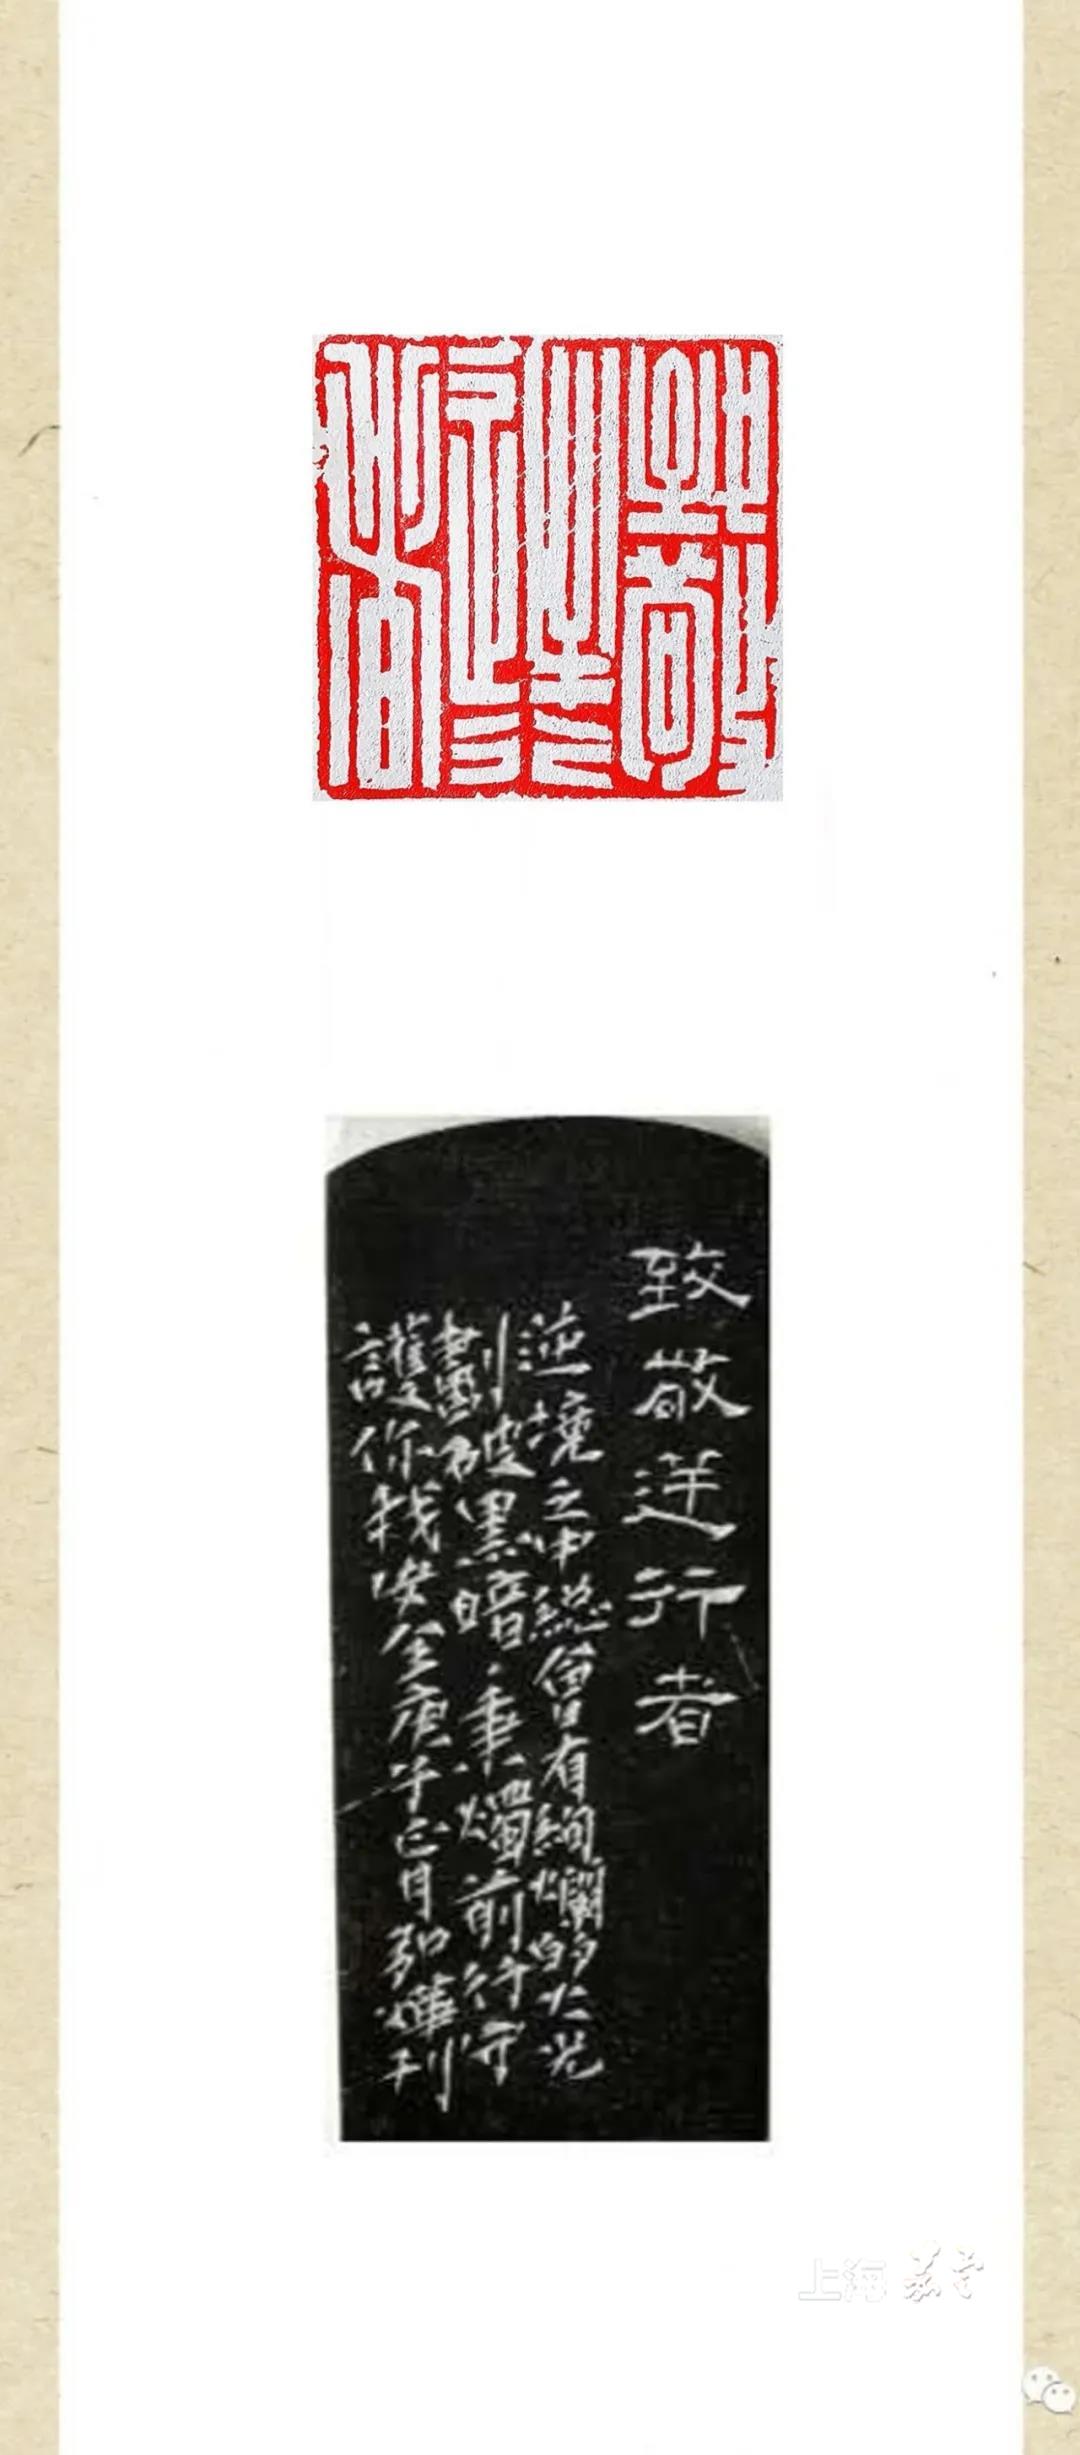 致敬
逆行
者
致敬逆行者
逆境之中總會有絢爛的火光
劃破黑暗、秉燭前行守
護你我安全庚子正月弘煒刊
上海